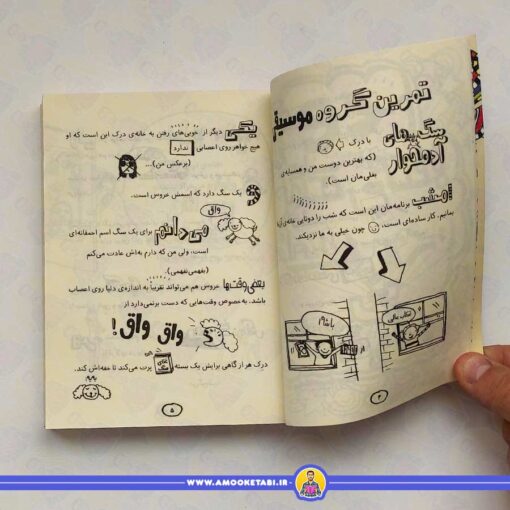 تمرین گروه موسیقی
با درک
(که بهترین دوست من و همسایه‌ی
بغلی‌مان است).
امشب برنامه‌مان این است که شب را دوتایی خانه‌ی
بمانیم. کار ساده‌ای است، چون خیلی به ما نزدیکند.
باشه!
انتخاب عالی
۴
یکی دیگر از خوبی‌های رفتن به خانه‌ی درک این است که او
هیچ خواهر روی اعصابی ندارد
(برعکس من)...
یک سگ دارد که اسمش خروس است.
واق
می‌دانم برای یک سگ اسم احمقانه‌ای
است، ولی من که دارم به‌اش عادت می‌کنم
(بفهمی‌نفهمی)
بعضی وقت‌ها خروس هم می‌تواند تقریباً به اندازه‌ی دلیا روی اعصاب
باشد. به‌خصوص وقت‌هایی که دست برنمی‌دارد از
واق واق!
درک هر از گاهی برایش یک بسته غذای سگ پرت می‌کند تا خفه‌اش کند.
۵
WWW.AMOOKETABI.IR